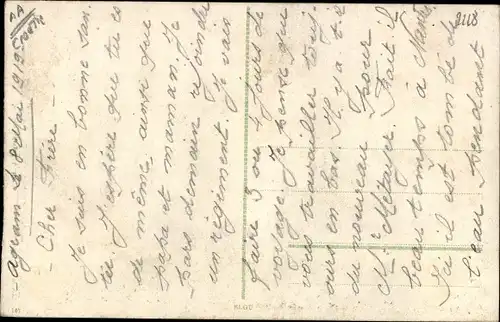 Agram le 8 Mai 1919
Croatie
- Cher Frère -
Je suis en bonne san-
té. J'espère que tu es
de même, ainsi que
papa et maman. Je
pars demain rejoindre
un régiment. Je vais
faire 3 ou 4 jours de
voyage. Je pense que
vous travailler touj-
ours en bas. Il y a t-il
du nouveau pour
Mr Métayer. Fait-il
beau temps à
Ici il est tombé de
l'eau pendant
2118